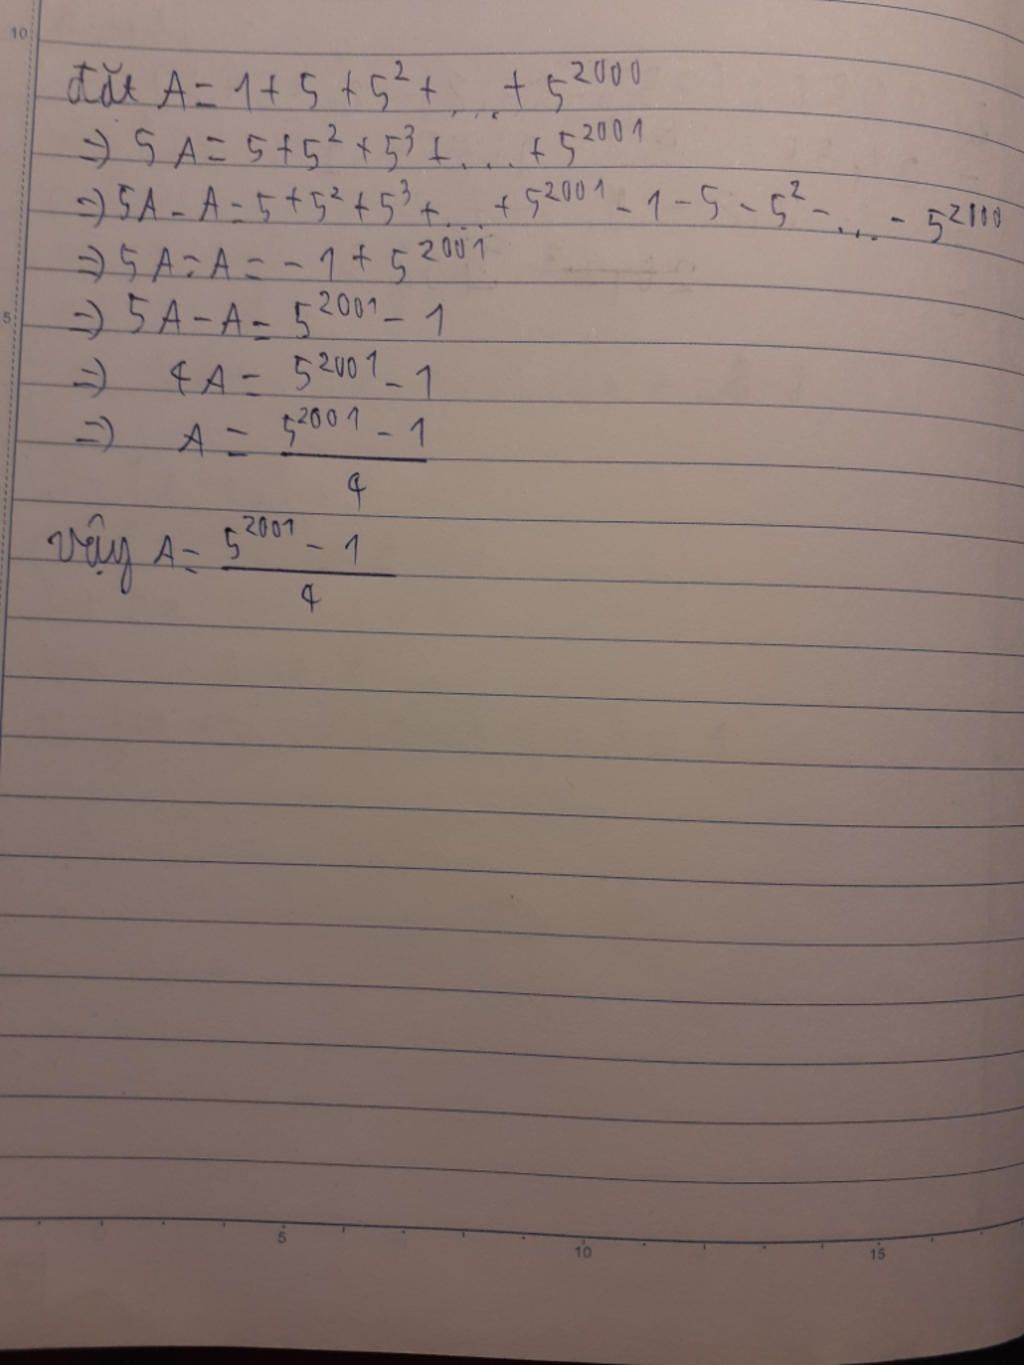 10
đặt A = 1 + 5 + 5² + ... + 5²⁰⁰⁰
=> 5A = 5 + 5² + 5³ + ... + 5²⁰⁰¹
=> 5A - A = 5 + 5² + 5³ + ... + 5²⁰⁰¹ - 1 - 5 - 5² - ... - 5²⁰⁰⁰
=> 5A = A = - 1 + 5²⁰⁰¹
5
=> 5A - A = 5²⁰⁰¹ - 1
=> 4A = 5²⁰⁰¹ - 1
=> A = 5²⁰⁰¹ - 1
4
Vậy A = 5²⁰⁰¹ - 1
4
5 10 15